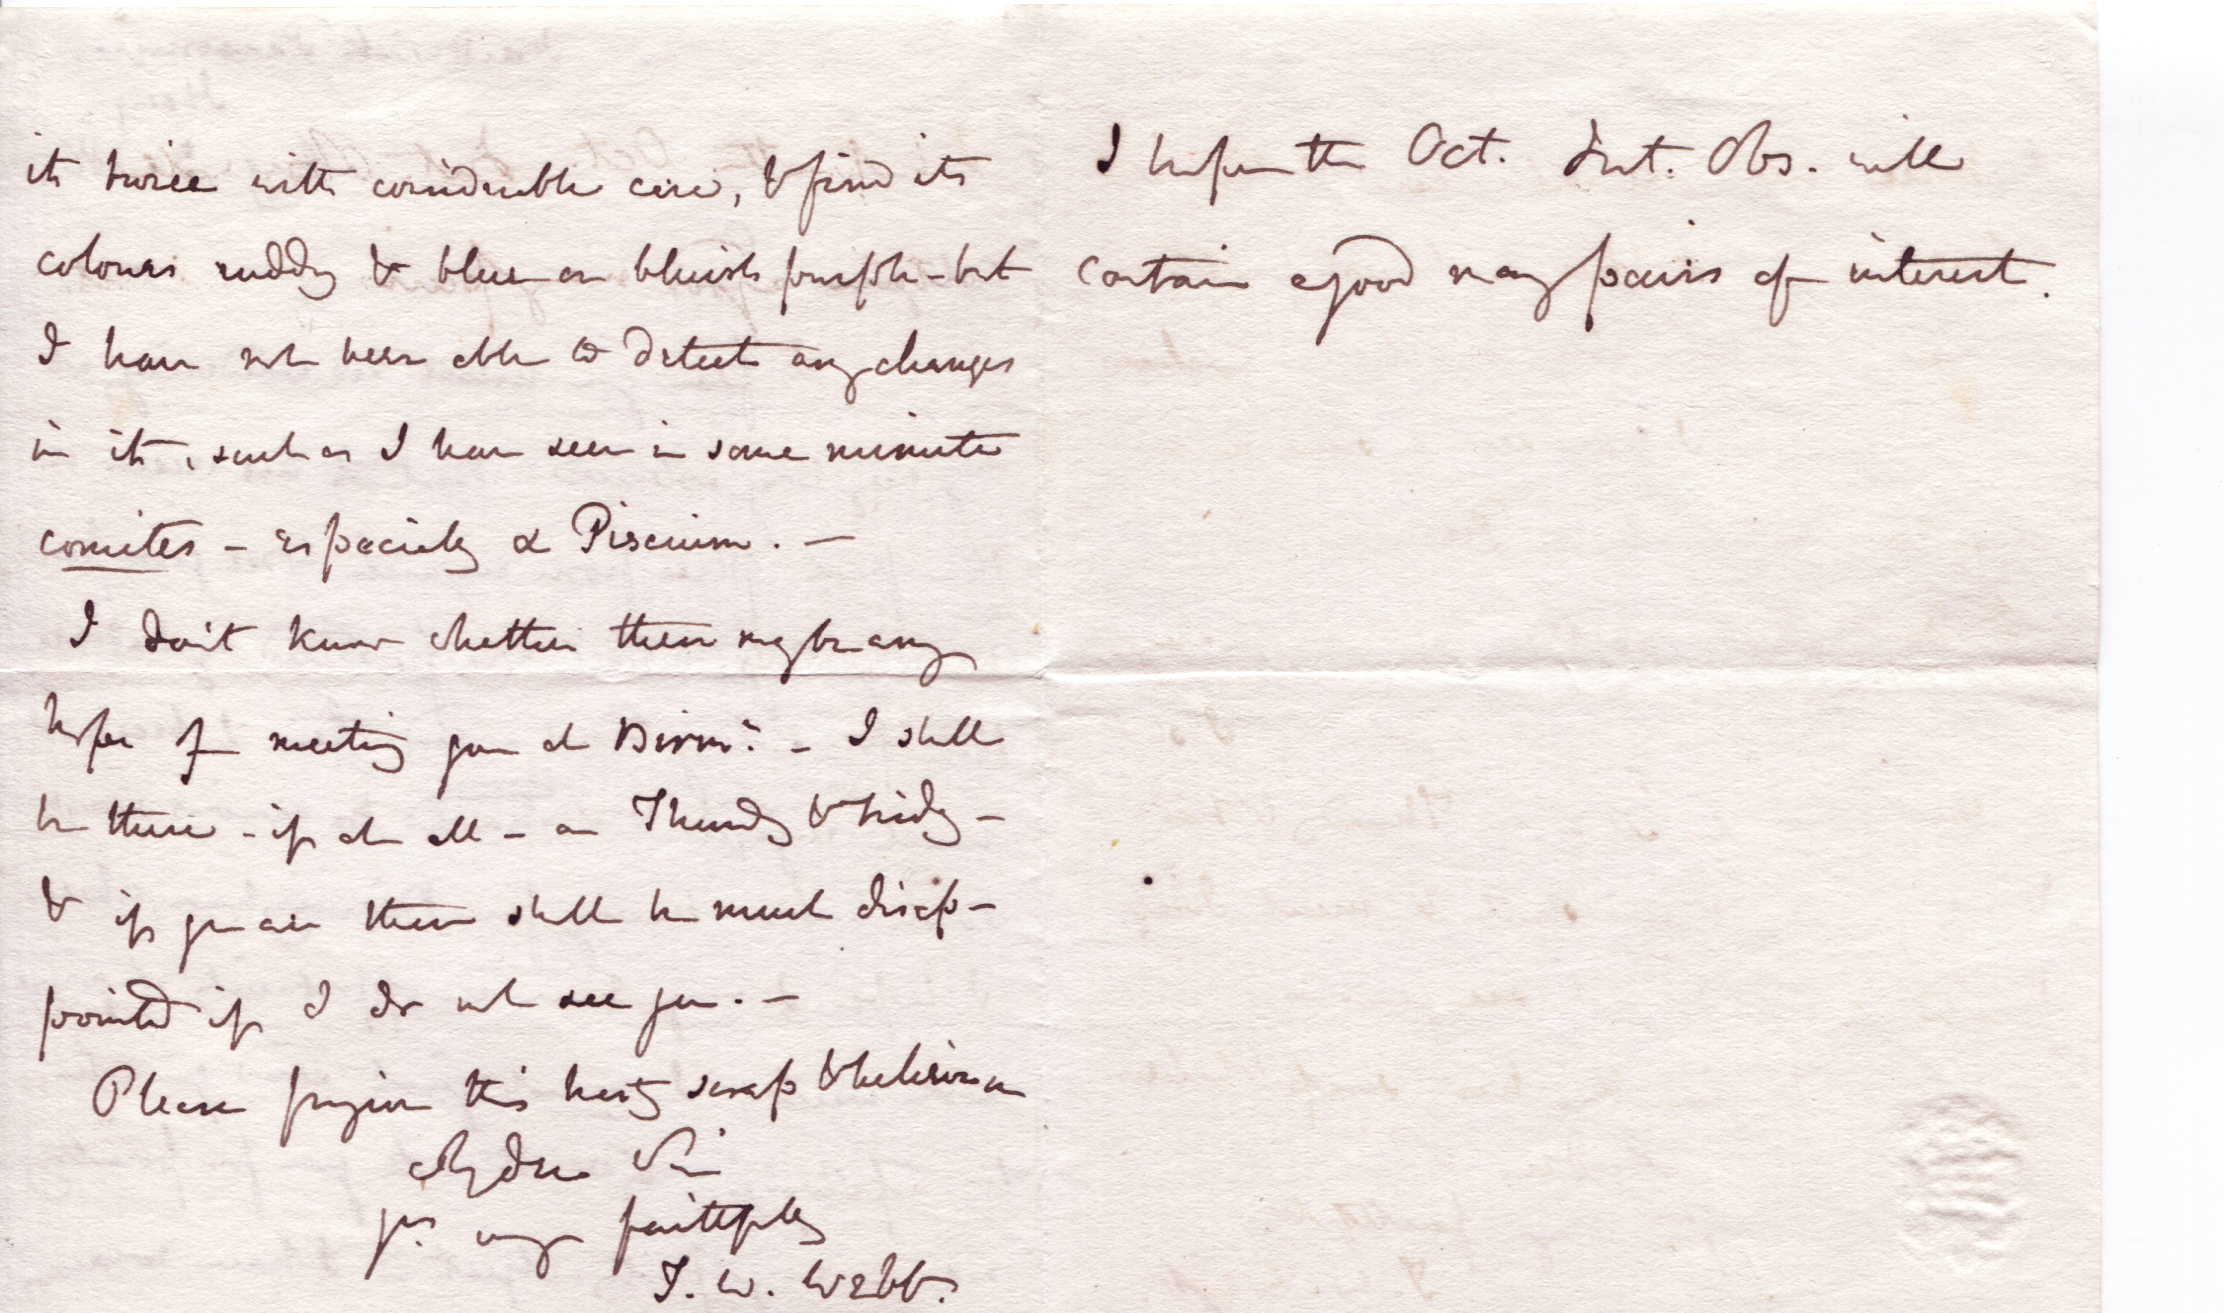 it twice with considerable care, & find its
colours ruddy & blue or bluish purple - but
I have not been able to detect any changes
in it, such as I have seen in some minute
comites - especially α Piscium. -
I don't know whether there may be any
hope of meeting you at Birm^m. - I shall
be there - if at all - on Thursdy & Fridy -
& if you are there shall be much disap-
pointed if I do not see you. -
Please forgive this hasty scrap & believe me
My dear Sir
yrs very faithfully
T. W. Webb.
I hope the Oct. Int. Obs. will
contain a good many pairs of interest.